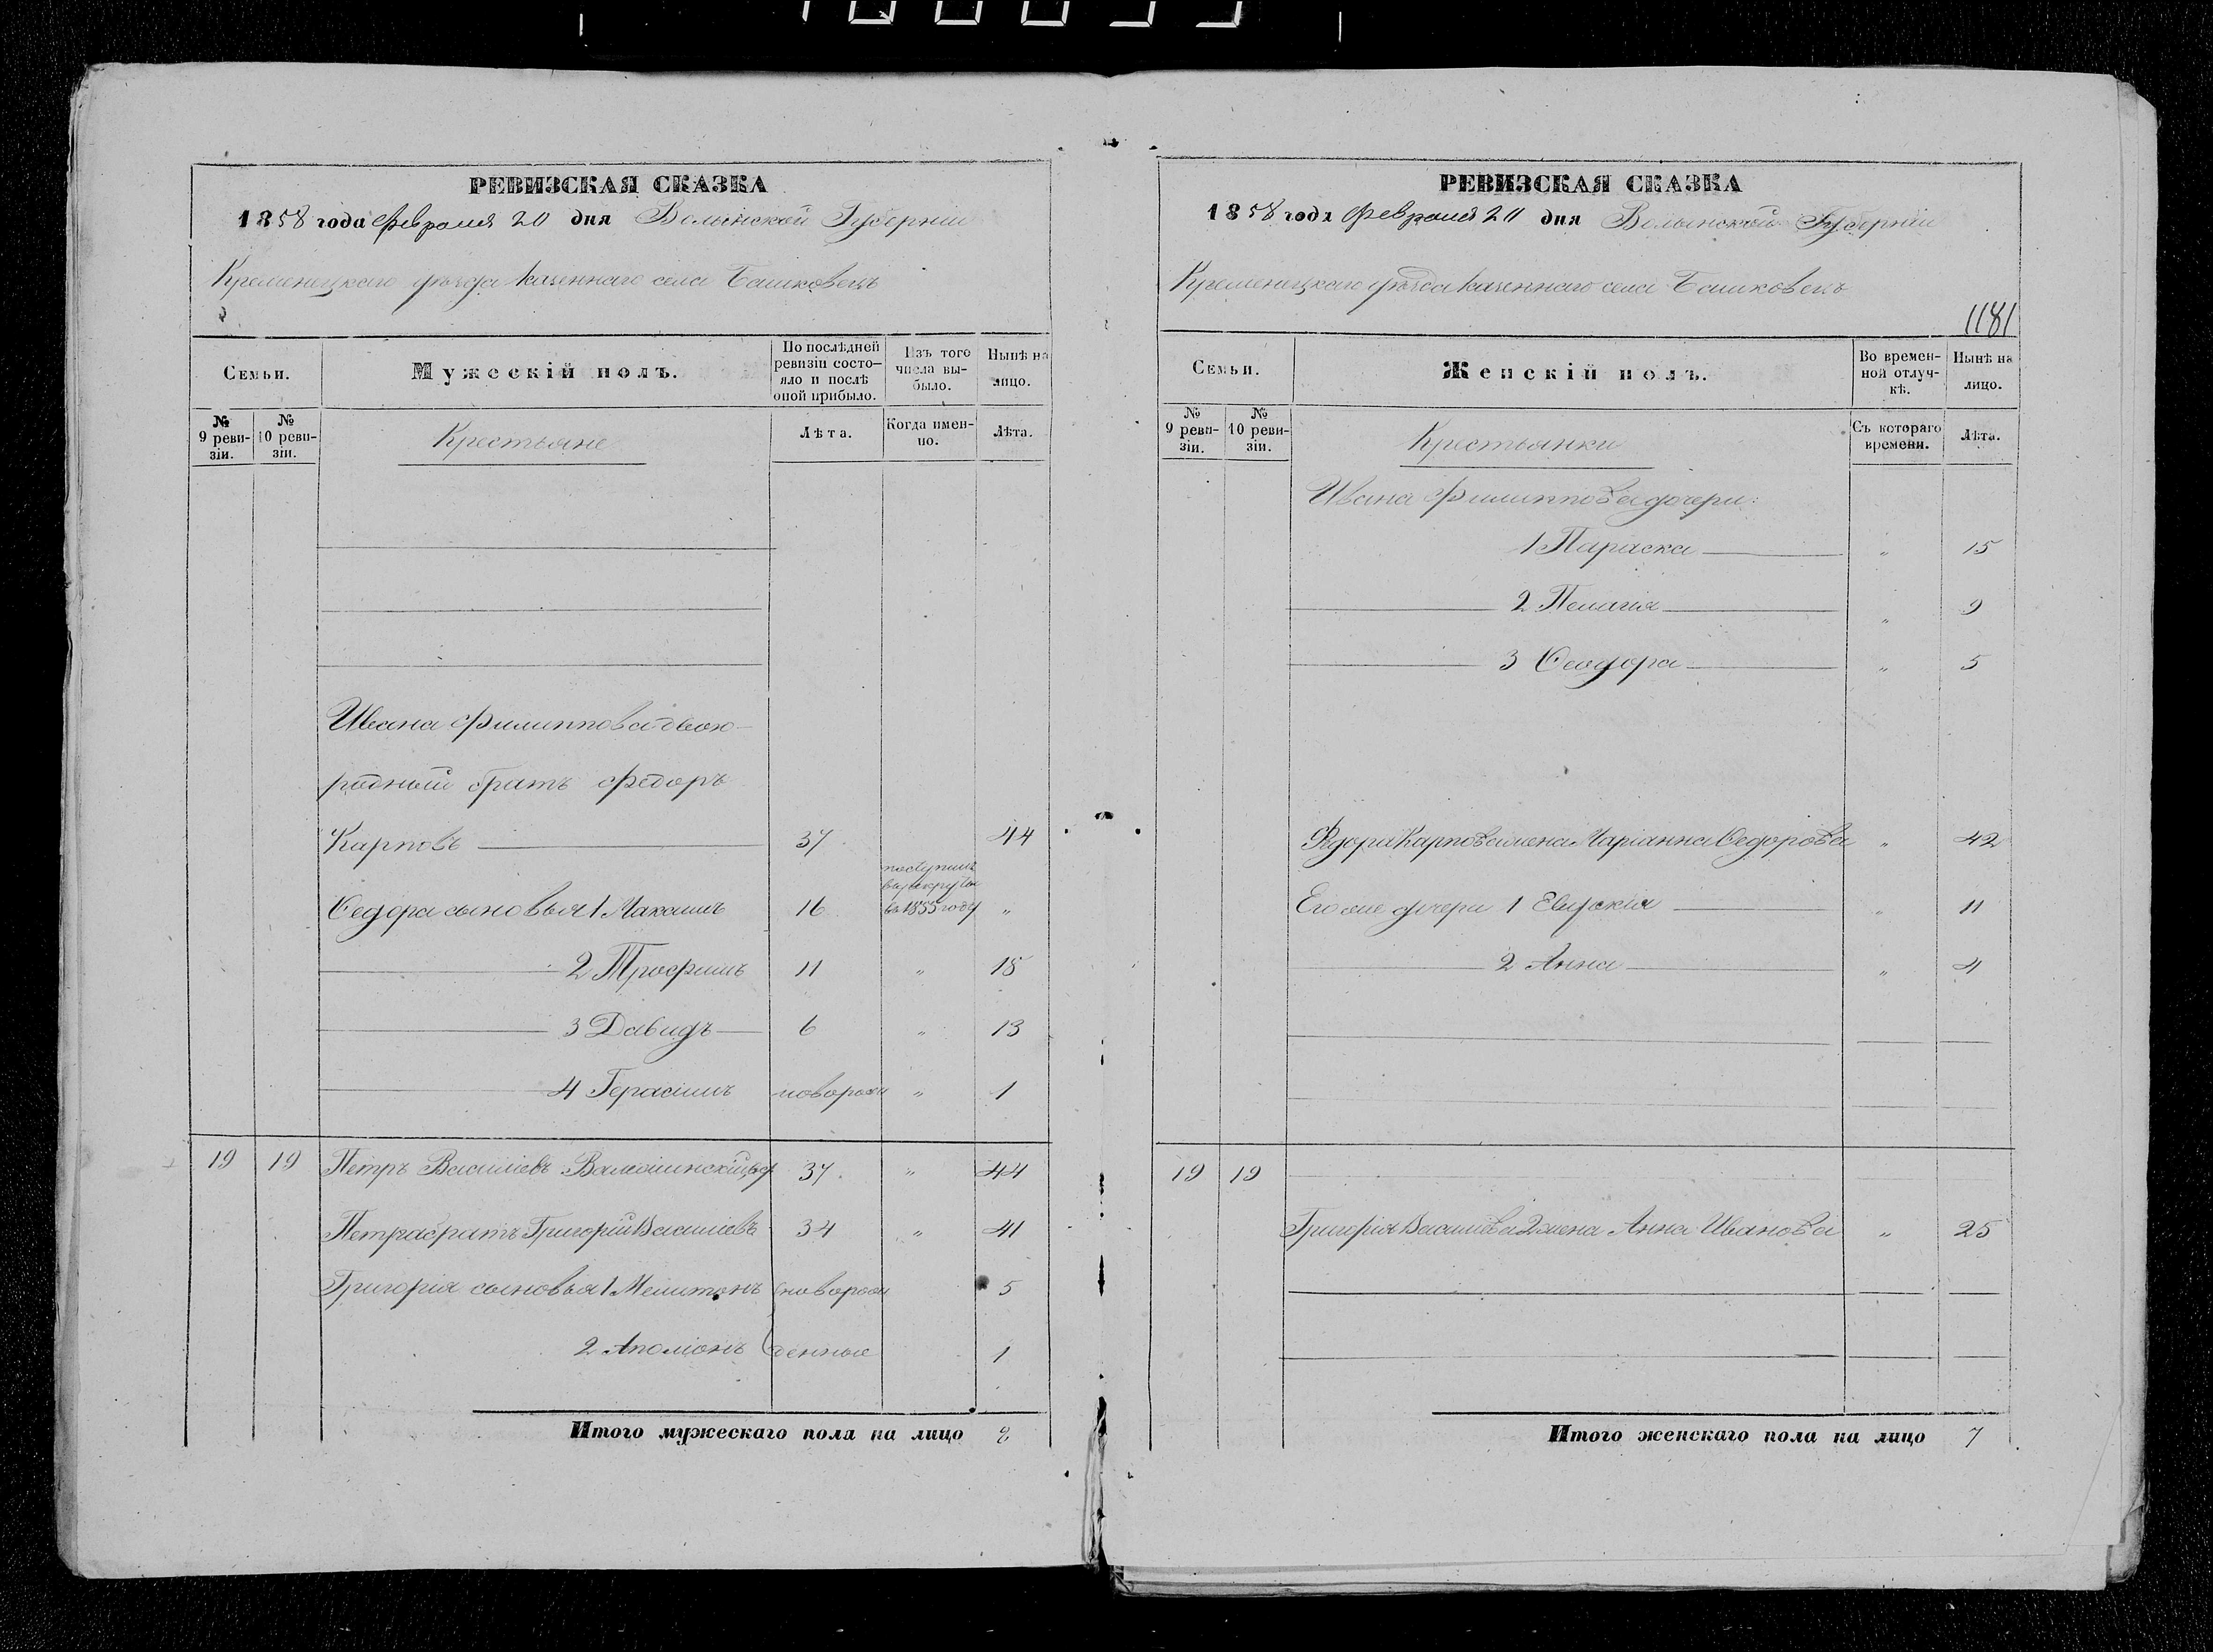 РЕВИЗСКАЯ СКАЗКА
1858 года Февраля 20 дня Волынской Губерніи
Кременецкаго уѣзда казеннаго села Башковецъ
Семьи.
Мужескій полъ.
По послѣдней ревизіи состояло и послѣ оной прибыло.
Изъ того числа выбыло.
Нынѣ на лицо.
№ 9 ревизіи.
№ 10 ревизіи.
Крестьяне
Лѣта.
Когда именно.
Лѣта.
Ивана Филиппова двою-
родный братъ Федоръ
Карповъ 37 44
Федора сыновья 1 Максимъ 16 поступилъ в рекруты въ 1855 году "
2 Трофимъ 11 " 18
3 Давидъ 6 " 13
4 Герасимъ новорож " 1
19 19 Петръ Василіевъ 37 " 44
Петра братъ Григорій Василіевъ 34 " 41
Григорія сыновья 1 Мелитонъ новорож 5
2 Аполіонъ денные 1
Итого мужескаго пола на лицо 8
РЕВИЗСКАЯ СКАЗКА
1858 года Февраля 20 дня Волынской Губерніи
Кременецкаго уѣзда казеннаго села Башковецъ
1181
Семьи.
Женскій полъ.
Во временной отлучкѣ.
Нынѣ на лицо.
№ 9 ревизіи.
№ 10 ревизіи.
Крестьянки
Съ котораго времени.
Лѣта.
Ивана Филиппова дочери:
1 Параска " 15
2 Пелагія " 9
3 Феодора " 5
Федора Карпова жена Маріанна Федорова " 42
Его же дочери 1 " 11
2 Анна " 4
19 19
Григорія Василіева 2 жена Анна Иванова " 25
Итого женскаго пола на лицо 7